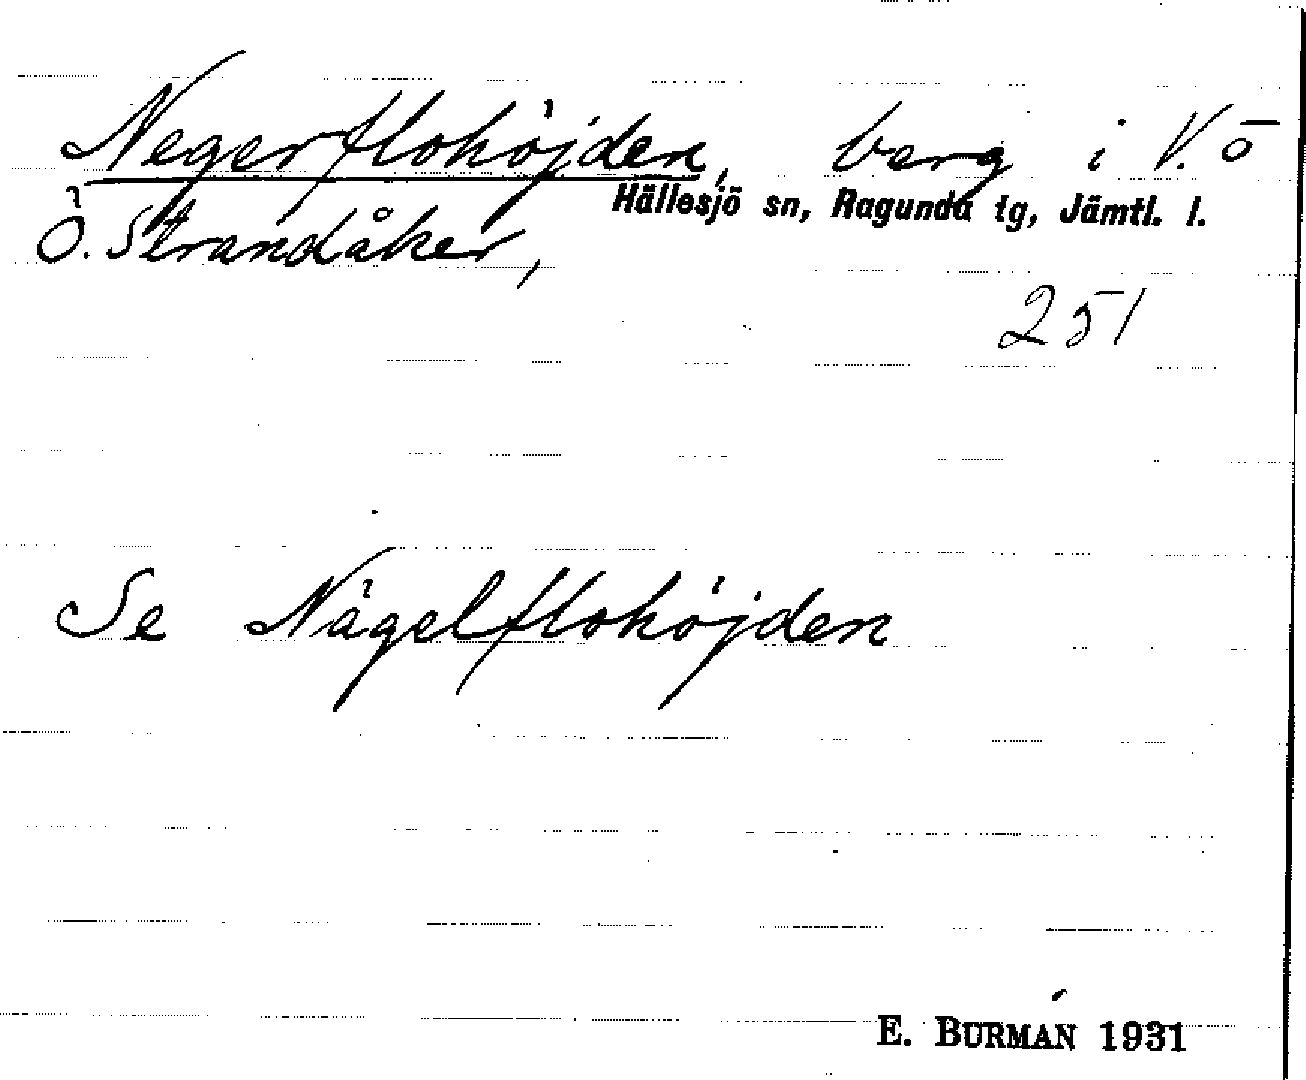 Negerflohöjden, berg i V. o
Ö. Strandåker,
Hällesjö sn, Ragunda tg, Jämtl. l.
251
Se Någelflohöjden
E. BURMAN 1931